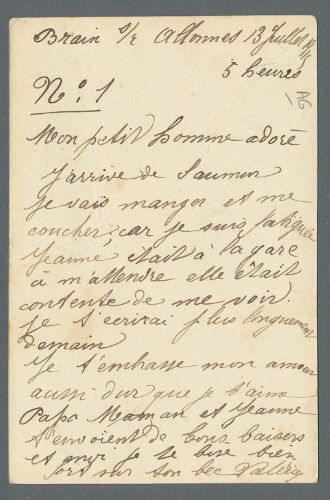 Brain s/ Allonnes 13 Juillet
5 heures
AG
No. 1
Mon petit homme adoré
J'arrive de Saumur
je vais manger et me
coucher, car je suis fatiguée
Jeanne était à la gare
à m'attendre elle était
contente de me voir.
je t'ecrirai plus longuement
demain
Je t'embrasse mon amour
aussi dur que je t'aime
Papa Maman et Jeanne
t'envoient de bons baisers
et moi je te bise bien
fort sur ton bec Valérie